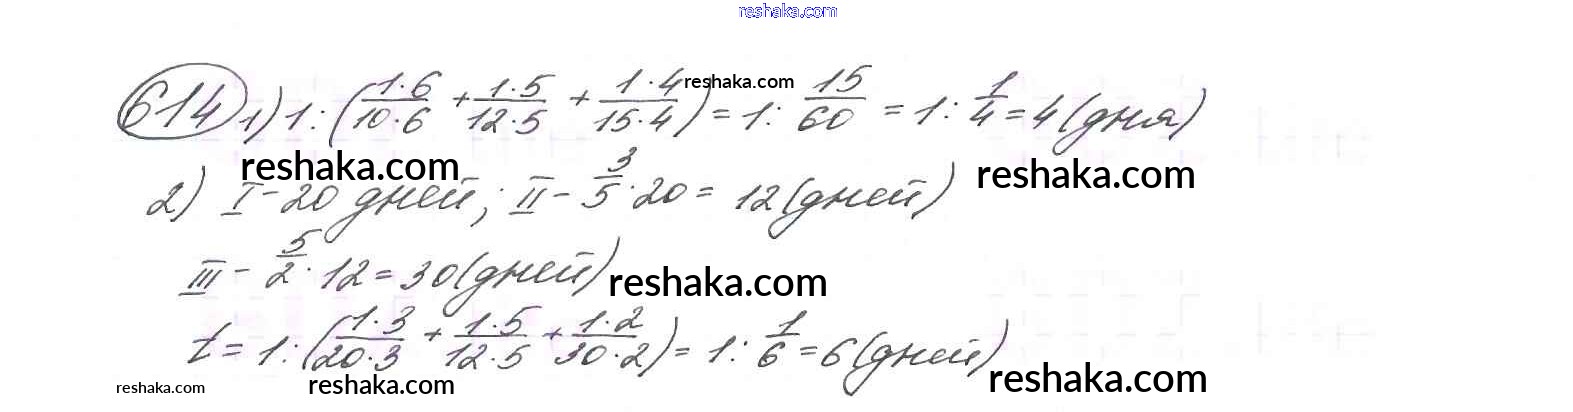 reshaka.com
614 1) 1 : (1·6/10·6 + 1·5/12·5 + 1·4/15·4) = 1 : 15/60 = 1 : 1/4 = 4 (дня)
reshaka.com
reshaka.com reshaka.com
2) I - 20 дней; II - 3/5 · 20 = 12 (дней)
III - 5/2 · 12 = 30 (дней)
reshaka.com
t = 1 : (1·3/20·3 + 1·5/12·5 + 1·2/30·2) = 1 : 1/6 = 6 (дней)
reshaka.com reshaka.com reshaka.com